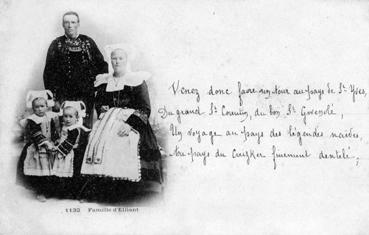 Venez donc faire un tour au pays de St Yves,
Du grand St Corentin, du bon St Gwenolé,
Un voyage au pays des légendes naïves,
Au pays du finement dentelé,
1132 Famille d'Elliant